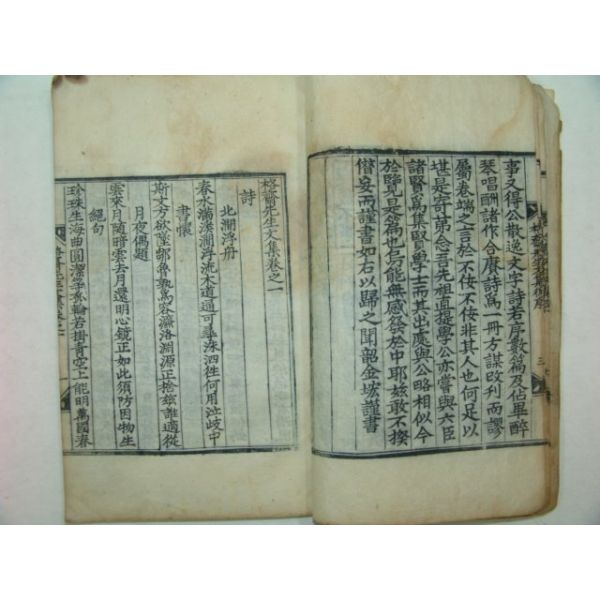 事又得公散逸文字詩若序數篇及佔畢醉
琴唱酬諸作合賡詩爲一冊方謀改刊而謬
屬卷端之言於不佞不佞非其人也何足以
堪是寄第念吾先祖直提學公亦嘗與六臣
諸賢爲集賢學士而其出處與公略相似今
於斯是篇也烏能無感發於中耶玆敢不揆
僭妄而謹書如右以歸之聞韶金㙆謹書
格齋先生文集卷之一
詩
北澗浮舟
春水滿溪澗浮流木道通可尋洙泗徃何用泣岐中
書懷
斯文方欲墜鄒魯孰爲容濂洛淵源正捨玆誰適從
月夜偶題
雲來月隨暗雲去月還明心鏡正如此須防因物生
絕句
珍珠生海曲圓潔等魚輪若掛靑空上能明萬國春